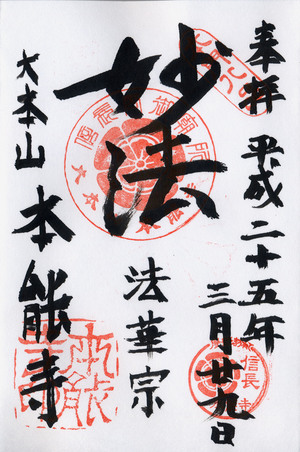 奉拝 平成二十五年
三月廿九日
妙法
法華宗
大本山 本能寺
信長
本能